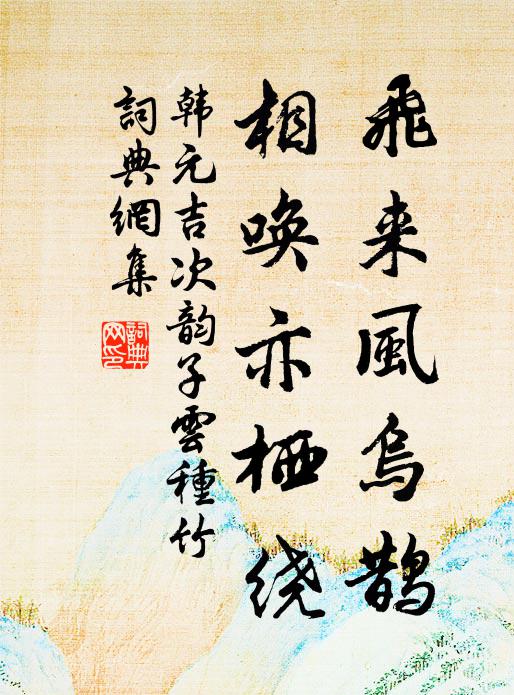 飛来風烏鹊
相唤亦栖绕
韩元吉次韵子雲種竹
詞典網集
詞典
网印